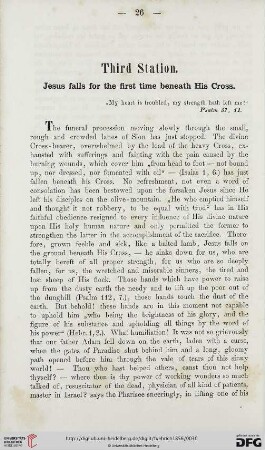 — 26 —
Third Station.
Jesus falls for the first time beneath His Cross.
»My heart is troubled, my strength hath left me!«
Psalm 37, 11.
The funeral procession moving slowly through the small,
rough and crowded lanes of Sion has just stopped. The divine
Cross-bearer, overwhelmed by the load of the heavy Cross, ex-
hausted with sufferings and fainting with the pain caused by the
burning wounds, which cover him „from head to foot — not bound
up, nor dressed, nor fomented with oil“ — (Isaia 1, 6.) has just
fallen beneath his Cross. No refreshment, not even a word of
consolation has been bestowed upon the forsaken Jesus since He
left his disciples on the olive-mountain. „He who emptied himself
and thought it not robbery, to be equal with God“ has in His
faithful obedience resigned to every influence of His divine nature
upon His holy human nature and only permitted the former to
strengthen the latter in the accomplishment of the sacrifice. There
fore, grown feeble and sick, like a halted lamb, Jesus falls on
the ground beneath His Cross, — he sinks down for us, who are
totally bereft of all proper strength, for us who are so deeply
fallen, for us, the wretched and miserable sinners, the tired and
lost sheep of His flock. Those hands which have power to raise
up from the dusty earth the needy and to lift up the poor out of
the dunghill (Psalm 112, 7.), those hands touch the dust of the
earth. But behold! these hands are in this moment not capable
to uphold him „who being the brightness of his glory, and the
figure of his substance and upholding all things by the word of
his power“ (Hebr. 1, 3.). What humiliation! It was not so grievously
that our father Adam fell down on the earth, laden with a curse,
when the gates of Paradise shut behind him and a long, gloomy
path opened before him through the vale of tears of this sinny
world! — Thou who hast helped others, canst thou not help
thyself? — where is thy power of working wonders so much
talked of, resuscitator of the dead, physician of all kind of patients,
master in Israel? says the Pharisee sneeringly, in lifting one of his
UNIVERSITÄTS-
BIBLIOTHEK
HEIDELBERG
http://digi.ub.uni-heidelberg.de/diglit/fuehrich1856/0030
© Universitätsbibliothek Heidelberg
gefördert durch die
DFG